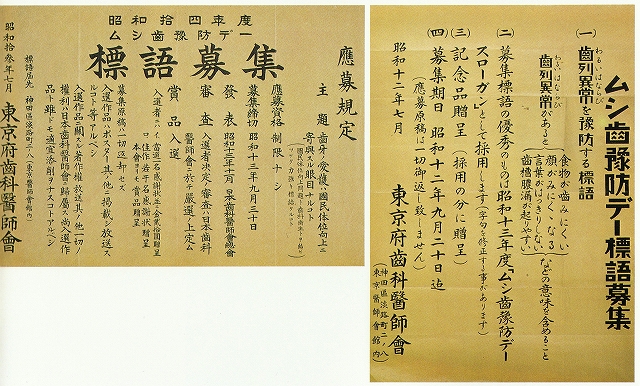 ムシ齒豫防デー標語募集
(一)
わるいはならび
齒列異常を豫防する標語
わるいはならび
齒列異常があると
食物が噛みにくい
顔がみにくくなる
言葉がはっきりしない
齒槽膿漏が起りやすい
などの意味を含めること
(二)
募集標語の優秀のものは昭和十三年度「ムシ齒豫防デー
スローガン」として採用します(字句を修正する事があります)
(三)
記念品贈呈(採用の分に贈呈)
(四)
募集期日 昭和十二年九月二十日迄
(應募原稿は一切御返し致しません)
昭和十二年七月
東京府齒科醫師會
神田區淡路町二ノ八
(東京醫師會館内)
昭和拾四年度
ムシ齒豫防デー
標語募集
應募規定
主題 齒牙ノ愛護ト國民体位向上ニ
寄與スル眼目ナルコト
應募資格 制限ナシ
募集締切 昭和十三年九月三十日
發表 昭和十三年十月 日本齒科醫師會總會
審査 入選者決定ノ審査ハ日本齒科
醫師會ニ於テ嚴選ノ上定ム
賞品 入選
募集原稿ハ一切返却セズ
入選作品ハポスター其ノ他ニ掲載シ放送ス
ルコト等アルベシ
入選作品ニ關スル著作權放送其ノ他一切ノ
權利ハ日本齒科醫師會歸屬ス尚入選作
品ト雖モ適宜添削ヲナスコトアルベシ
標語届先 神田區淡路町二ノ八(東京醫師會館内)
昭和拾参年七月 東京府齒科醫師會